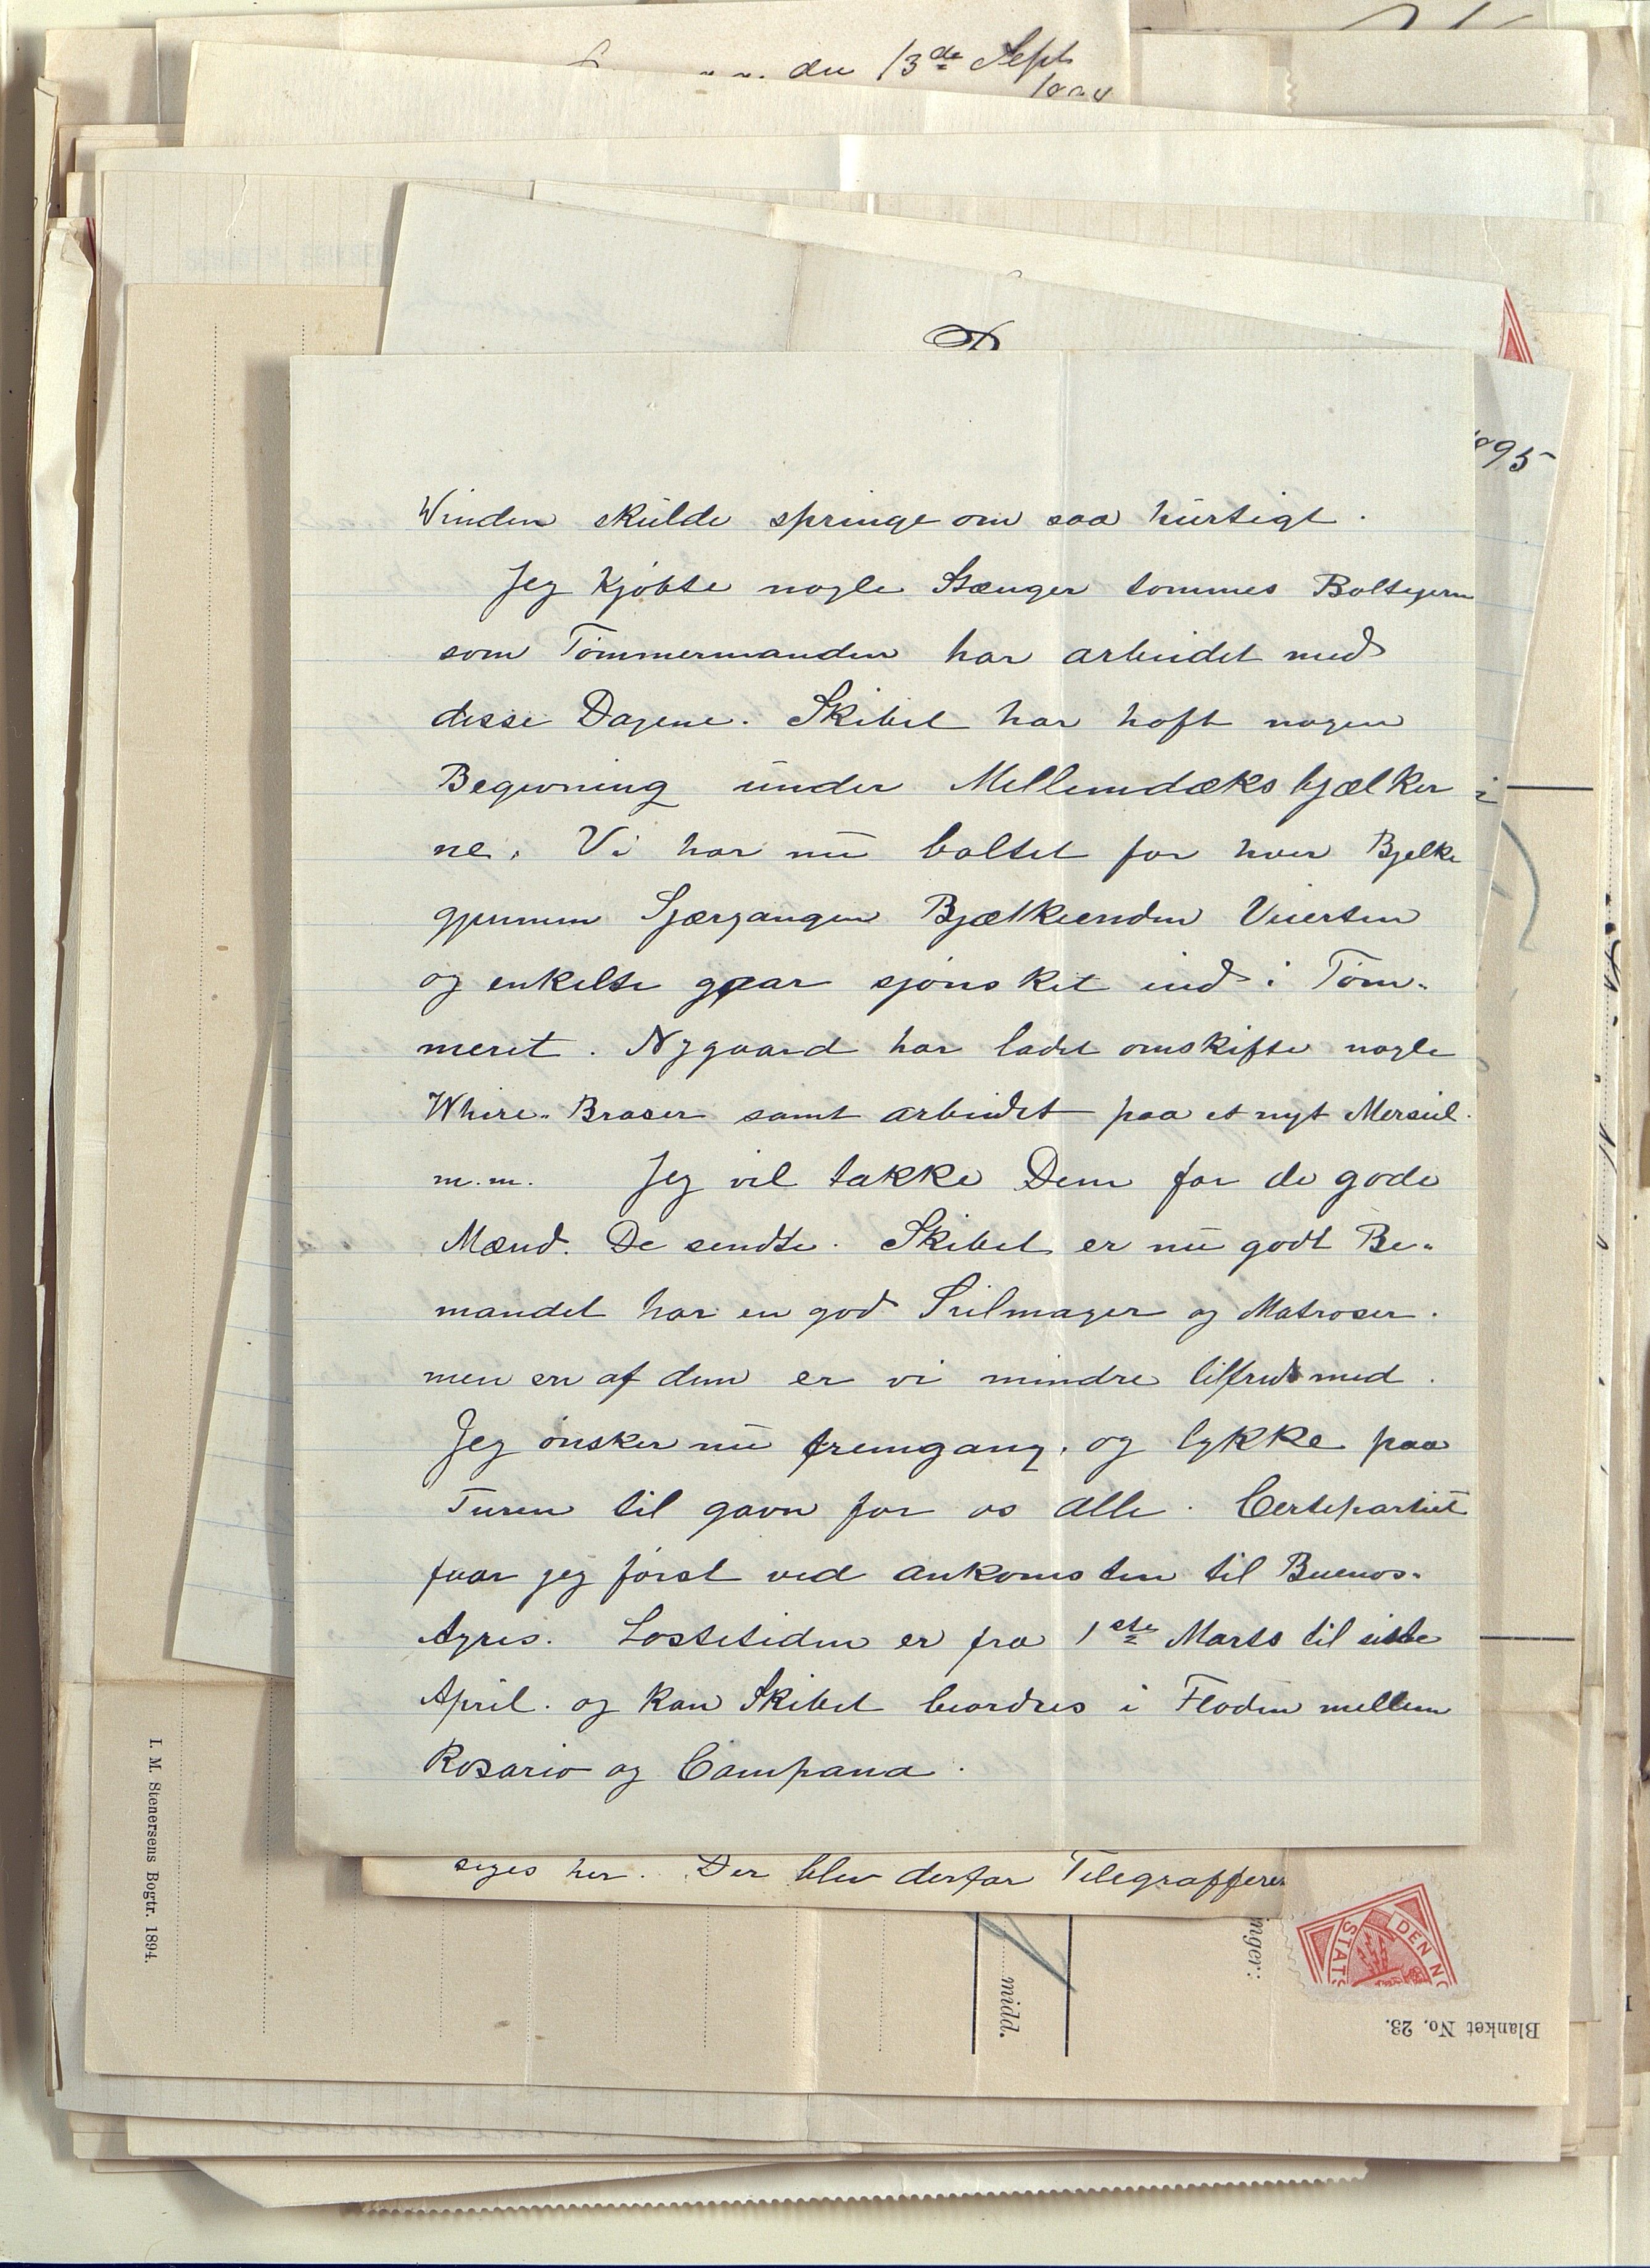 den 13de Sept
95
Winden skulde springe om saa hurtigt.
Jeg Kjöbte nogle Stænger tommes Boltejern
som Tömmermanden har arbeidet med
disse Dagene. Skibet har haft nogen
Begivning under Mellemdæksbjælker
ne. Vi har nu boltet for hver Bjelke
gjennem Skjærgangen Bjælkeenden
og enkelte gaar sjönsket ind i Töm-
meret. Nygaard har ladet omskifte nogle
Whire-Braser samt arbeidet paa et nyt Merseil.
m.m. Jeg vil takke Dem for de gode
Mænd. De sendte. Skibet er nu godt Be-
mandet har en god Seilmager og Matroser.
men en af dem er vi mindre tilfreds med.
Jeg önsker nu fremgang, og lykke paa
Turen til gavn for os alle. Certepartiet
faar jeg först ved ankomsten til Buenos-
Ayres. Lossetiden er fra 1ste Marts til siste
April. og kan Skibet beordres i Floden mellem
Rosario og Campana.
siges her. Der blev derfor Telegrafferer
I. M. Stenersens Bogtr. 1894.
midd.
nger:
DEN NO
STATS
Blanket No. 23.